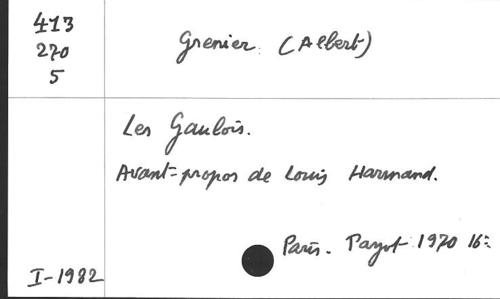 413
270
5
Grenier (Albert)
Les Gaulois.
Avant-propos de Louis Harmand.
Paris. Payot 1970 16=
I-1982